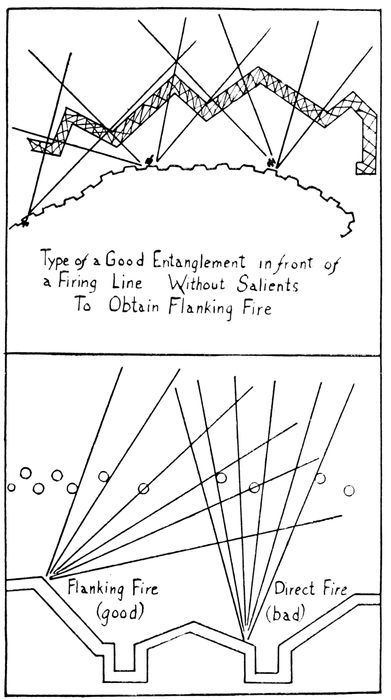 Type of a Good Entanglement in front of
a Firing Line Without Salients
To Obtain Flanking Fire
Flanking Fire
(good)
Direct Fire
(bad)